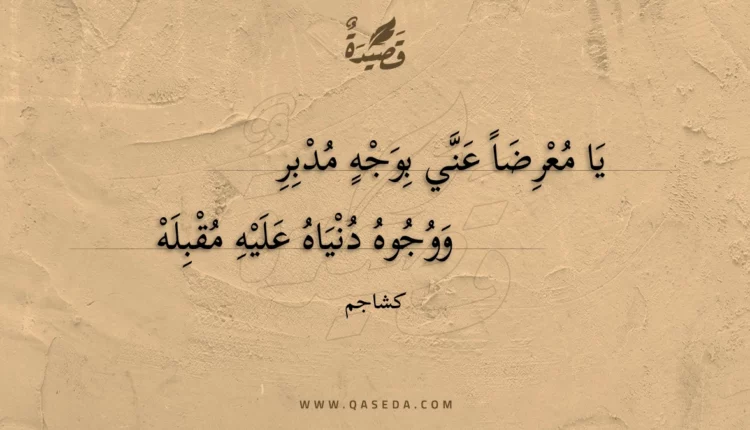 قَصِيدَةٌ
يَا مُعْرِضَاً عَنَّي بِوَجْهٍ مُدْبِرِ
وَوُجُوهُ دُنْيَاهُ عَلَيْهِ مُقْبِلَهْ
كشاجم
WWW.QASEDA.COM